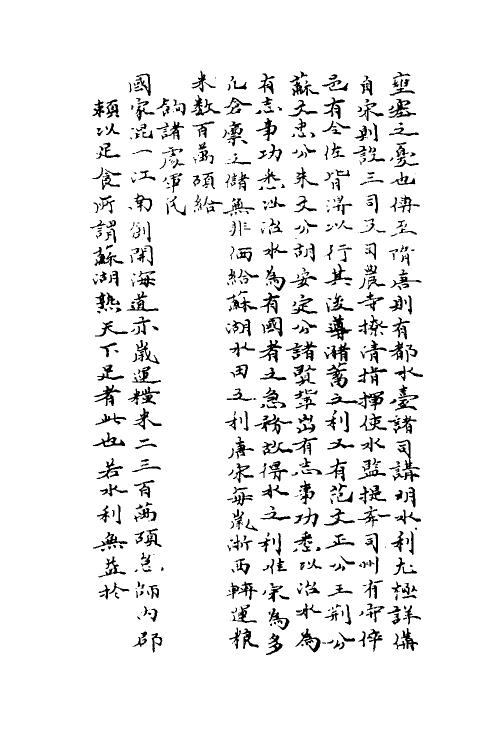 壅塞之憂也傳至隋唐則有都水臺諸司講明水利尤極詳備
自宋則設三司互司農寺撩清指揮使水監提舉司州有守倅
邑有令佐皆得以行其浚導瀦蓄之利又有范文正公王荆公
蘇文忠公朱文公胡安定公諸賢輩出有志事功悉以治水為
有志事功悉以治水為有國者之急務故得水之利惟宋為多
凡倉廩之儲無非仰給蘇湖水田之利唐宋每歲浙西轉運糧
米数百萬碩給
餉諸處軍民
國家混一江南創開海道亦歲運糧米二三百萬碩京師內郡
賴以足食所謂蘇湖熟天下足者此也若水利無益於